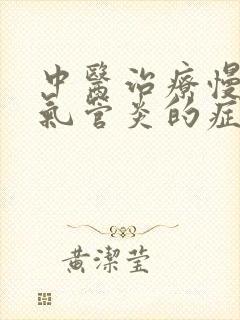 中醫治療慢
氣管炎的症
黃潔瑩